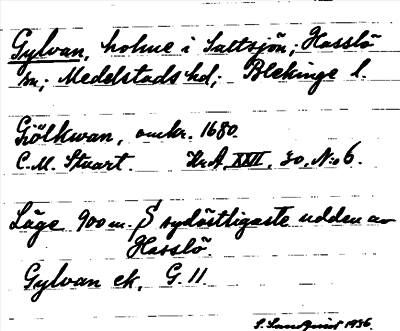 Gylvan, holme i Saltsjön; Hasslö
sn; Medelstads hd; Blekinge l.
Gölkwan, omkr. 1680.
C.M. Stuart. Kr.A. XXII, 30, N:o 6.
Läge 900 m. S sydöstligaste udden av
Hasslö
Gylvan ek. G. 11.
S. Landquist 1936.